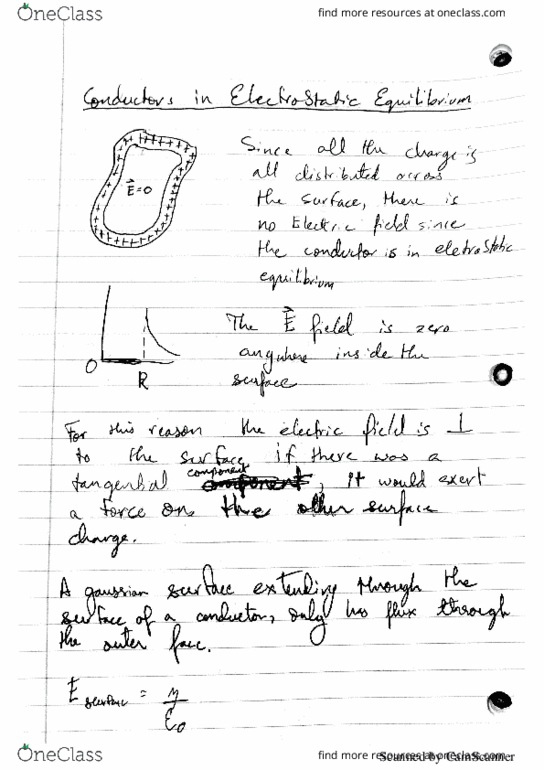 OneClass
find more resources at oneclass.com
Conductors in Electrostatic Equilibrium
Since all the charge is
all distributed across
the surface, there is
no Electric field since
the conductor is in eletrostatic
equilibrium
E⃗=0
The E⃗ field is zero
anywhere inside the
surface
O
R
For this reason the electric field is ⊥
to the surface if there was a
tangential component, it would exert
a force on the other surface
charge.
A gaussian surface extending through the
surface of a conductor, only has flux through
the outer face.
E surface = η
ε0
OneClass
find more resources at oneclass.com
Scanned by CamScanner